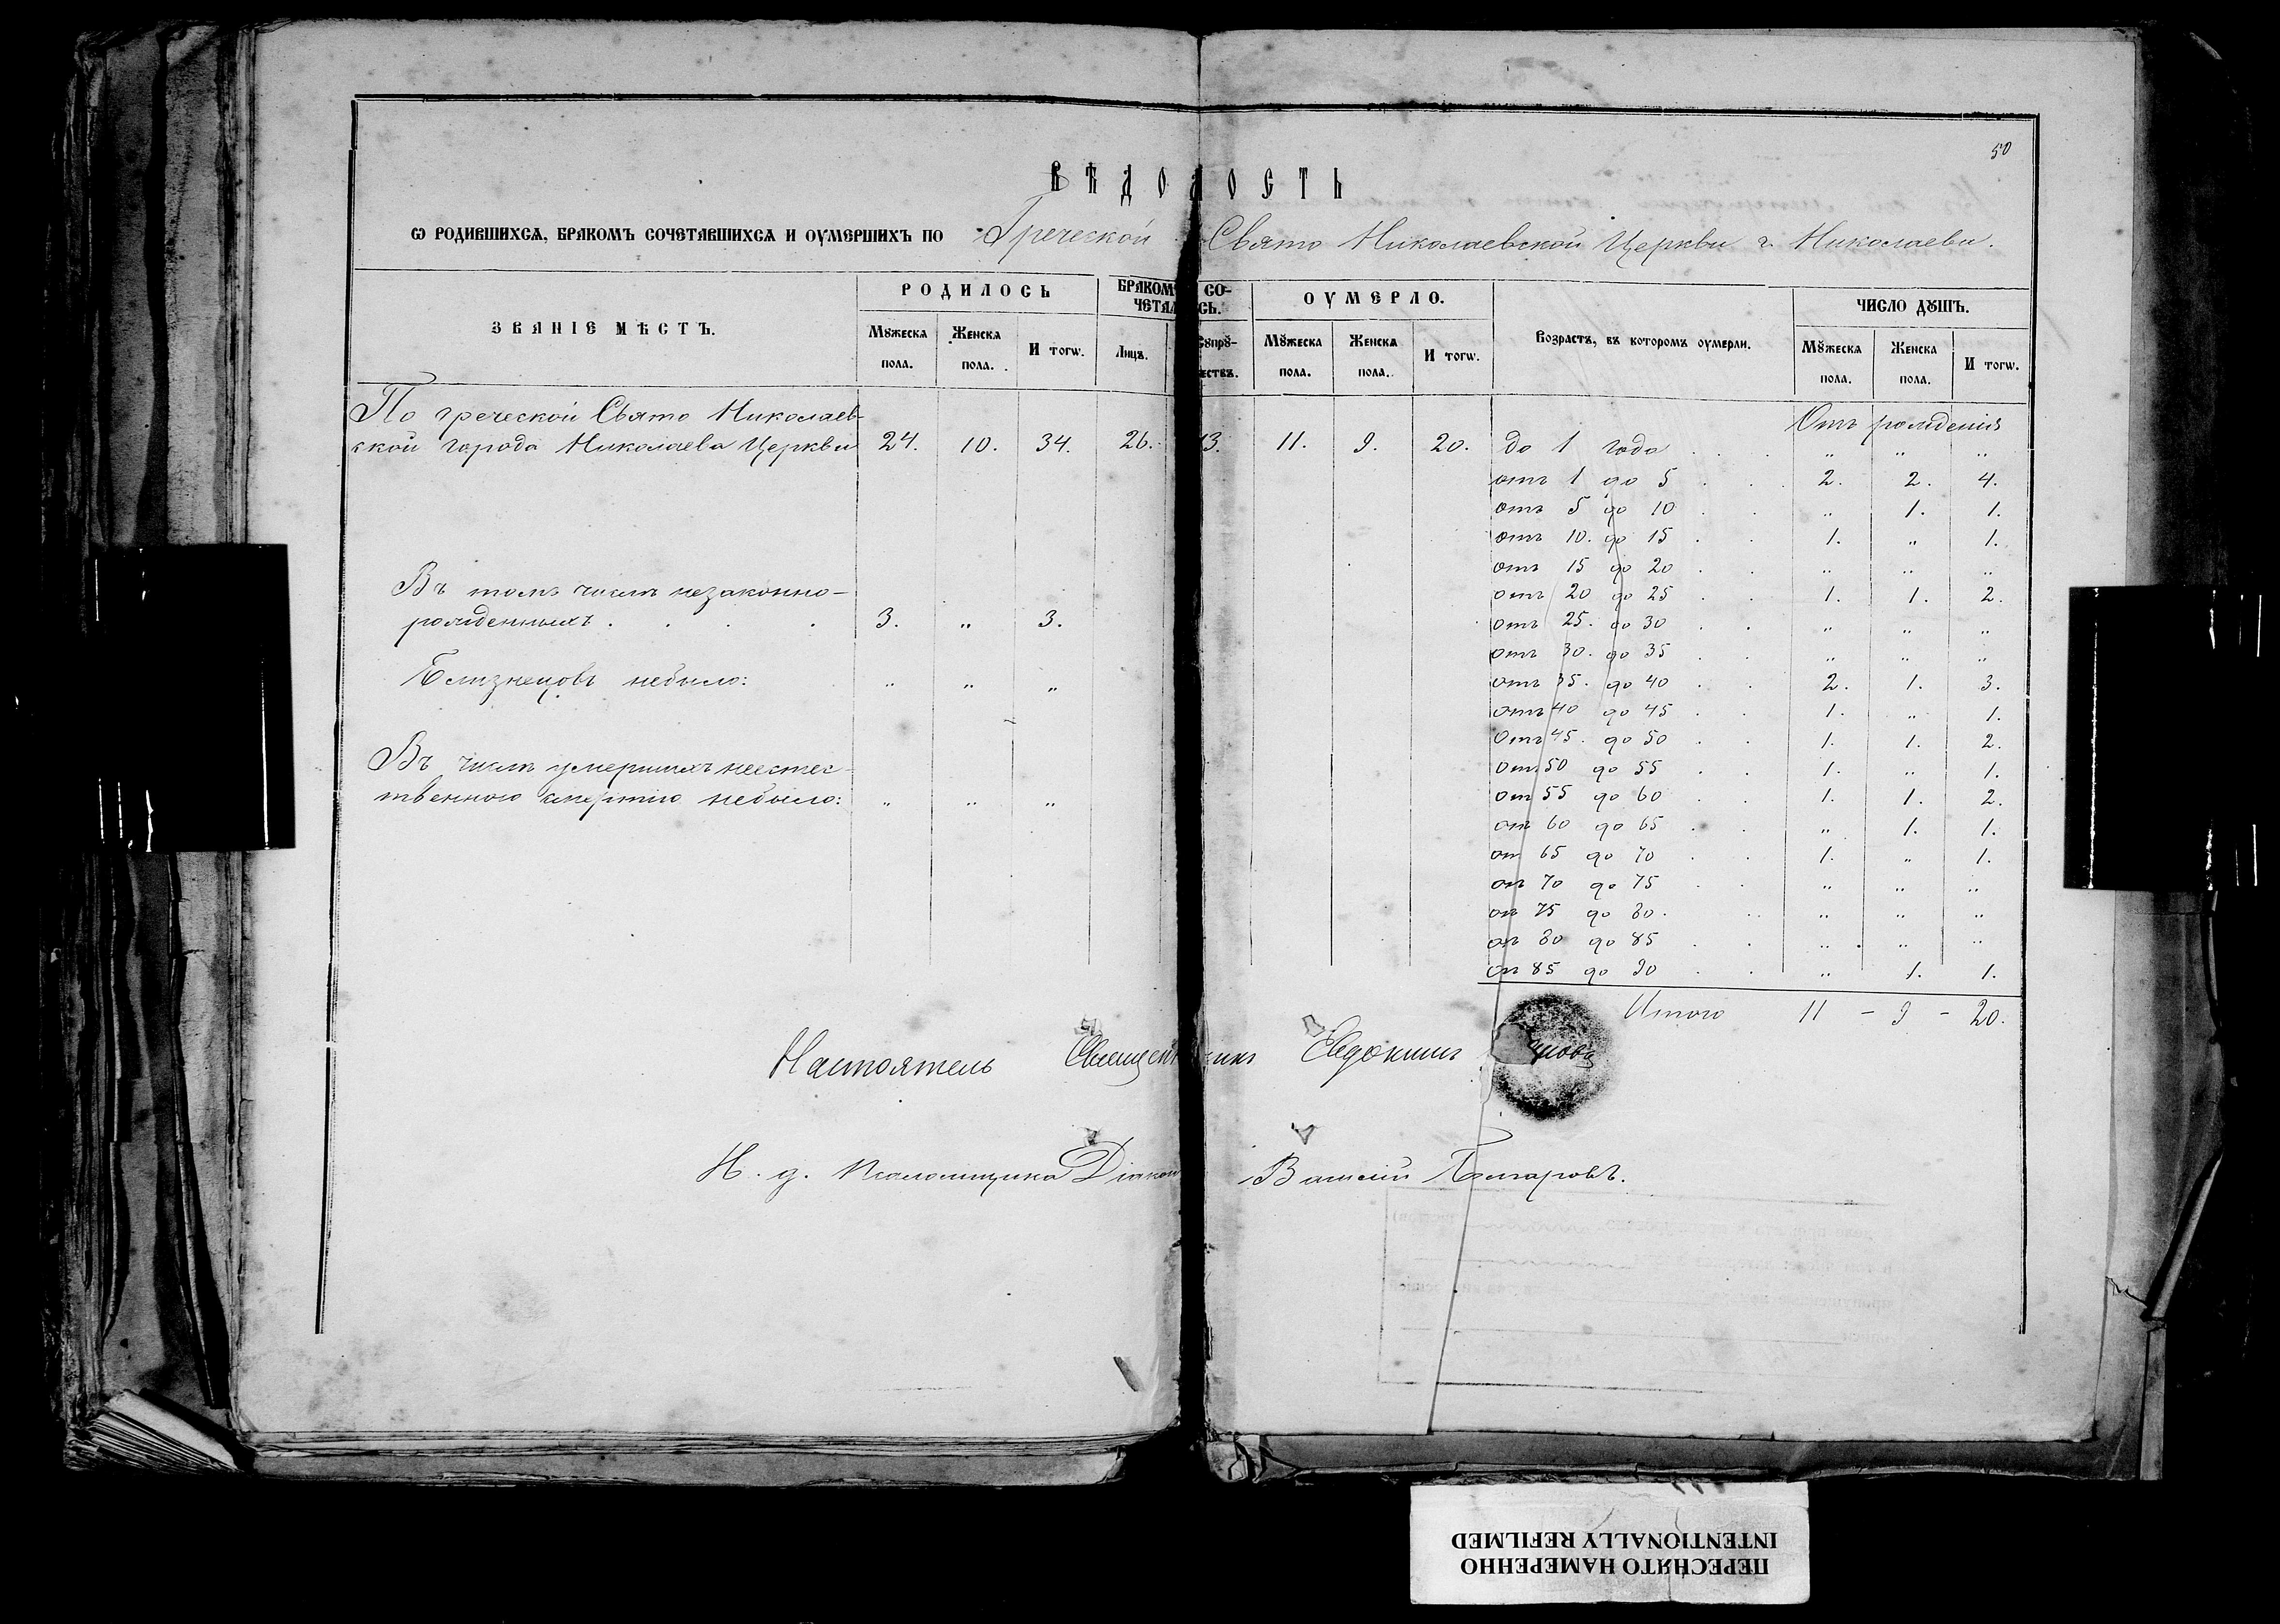 50
ВѢДОМОСТЬ
Ѡ РОДИВШИХСѦ, БРАКОМЪ СОЧЕТАВШИХСѦ И ОУМЕРШИХЪ ПО Греческой Свято Николаевской Церкви г. Николаева.
ЗВАНІЕ МѢСТЪ.
РОДИЛОСЬ
БРАКОМЪ СО-
ЧЕТАЛОСЬ.
ОУМЕРЛО.
Возрастъ, въ которомъ оумерли.
ЧИСЛО ДꙊШЪ.
Мꙋжеска пола.
Женска пола.
И тогѡ.
Лицъ.
Сꙋпрꙋ-
жествъ.
Мꙋжеска пола.
Женска пола.
И тогѡ.
Мꙋжеска пола.
Женска пола.
И тогѡ.
По греческой Свято Николаев-
ской города Николаева Церкви 24. 10. 34. 26. 13. 11. 9. 20.
Отъ рожденія
до 1 года . . . „ „ „
отъ 1 до 5 . . . 2. 2. 4.
отъ 5 до 10 . . „ 1. 1.
отъ 10. до 15 . . 1. „ 1.
отъ 15 до 20 . . „ „ „
отъ 20 до 25 . . 1. 1. 2.
отъ 25. до 30 . . „ „ „
отъ 30. до 35 . . „ „ „
отъ 35. до 40 . . 2. 1. 3.
отъ 40 до 45 . . 1. „ 1.
отъ 45. до 50 . . 1. 1. 2.
отъ 50 до 55 . . 1. „ 1.
отъ 55 до 60 . . 1. 1. 2.
отъ 60 до 65 . . „ 1. 1.
отъ 65 до 70 . . 1. „ 1.
отъ 70 до 75 . . „ „ „
отъ 75 до 80. . . „ „ „
отъ 80 до 85 . . „ „ „
отъ 85 до 90 . . „ 1. 1.
Итого 11 - 9 - 20.
Въ томъ числѣ незаконно-
рожденныхъ . . . . 3. „ 3.
Близнецовъ небыло: „ „ „
Въ числѣ умершихъ неестес-
твенною смертію небыло: „ „ „
Настоятель Священникъ Евдокимъ
И. д. Псаломщика Діаконъ Василій
ПЕРЕСНЯТО НАМЕРЕННО
INTENTIONALLY REFILMED